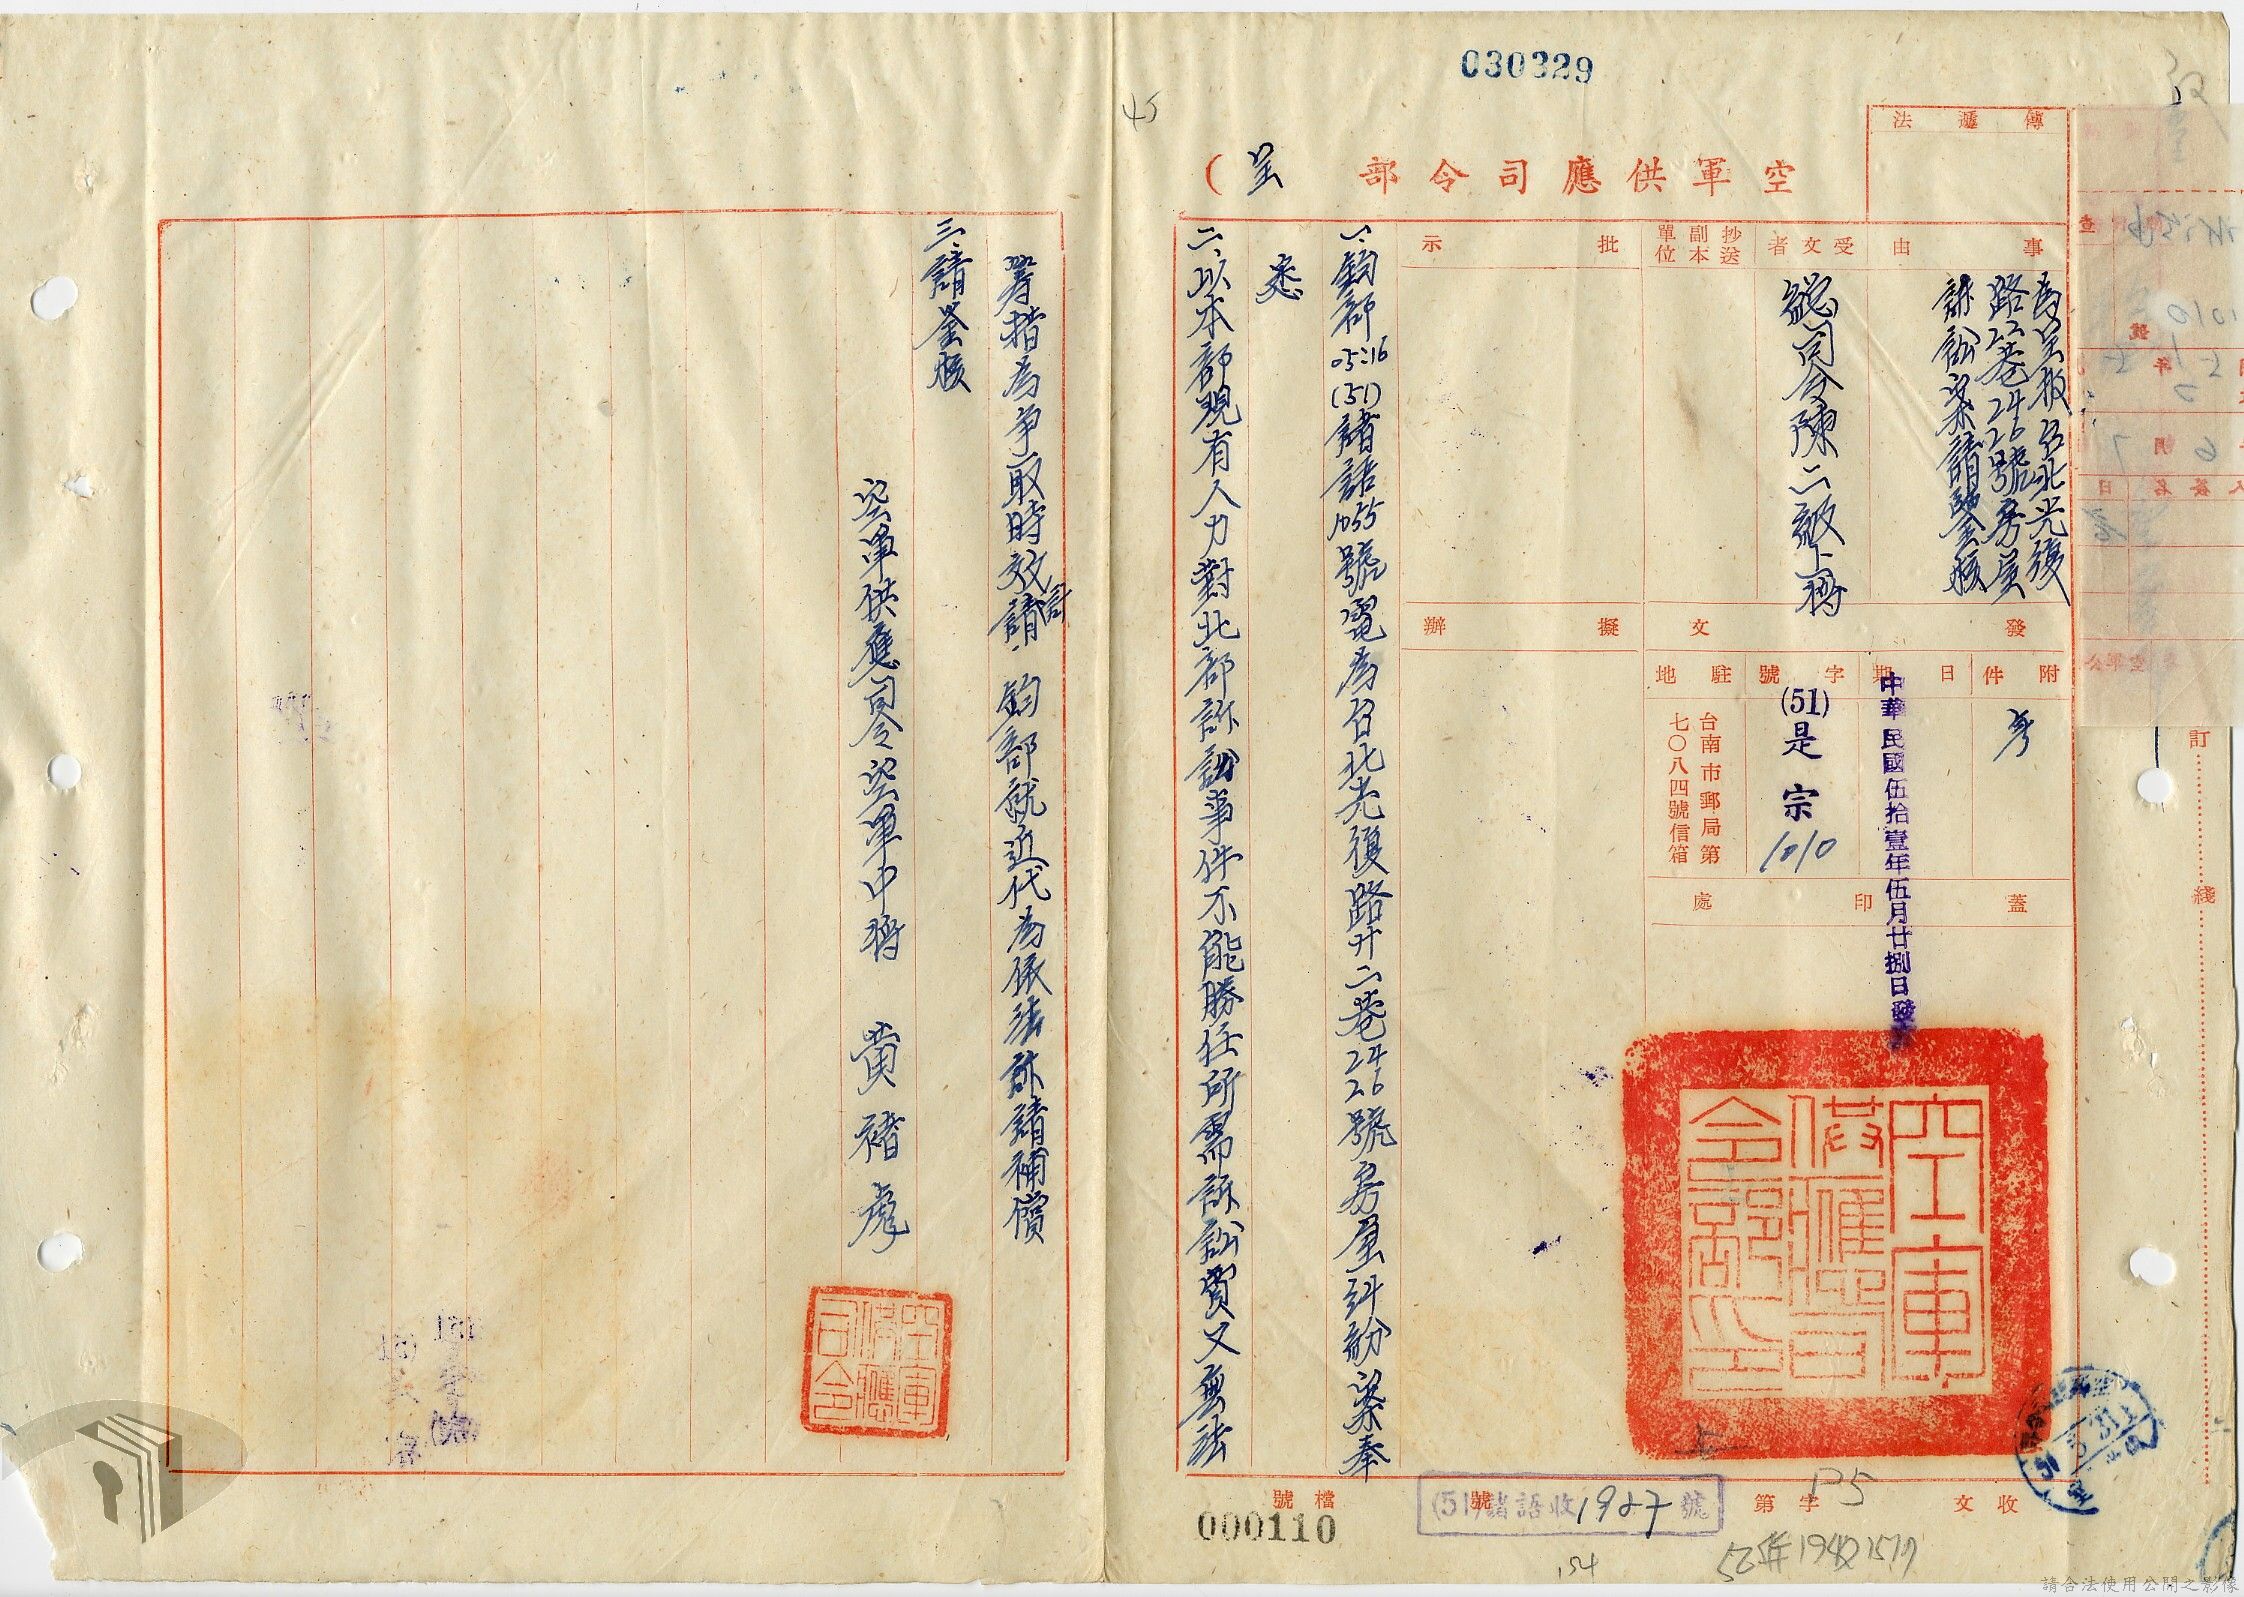 030329
45
傳遞法
空軍供應司令部（呈
事由
為呈報台北光復
路22巷24 26號房屋
訴訟案請鑒核
受文者
總司令陳二級上將
抄送副本單位
批示
發文
擬辦
附件
日期
字號
駐地
中華民國伍拾壹年伍月廿捌日發
(51)是宗1010
台南市郵局第
七〇八四號信箱
蓋印處
空軍供應司令部之印
一、鈞部05:16(51)諸語1055號電為台北光復路廿二巷24 26號房屋糾紛案奉
悉
二、以本部現有人力對北部訴訟事件不能勝任所需訴訟費又無法
籌措為爭取時效請 鈞部就近代為依法訴請補償
三、請鑒核
空軍供應司令空軍中將 黃褚彪
空軍供應司令
收文
字第
號
(51)諸語收1927號
檔號
000110
154
訂
綫
請合法使用公開之影像